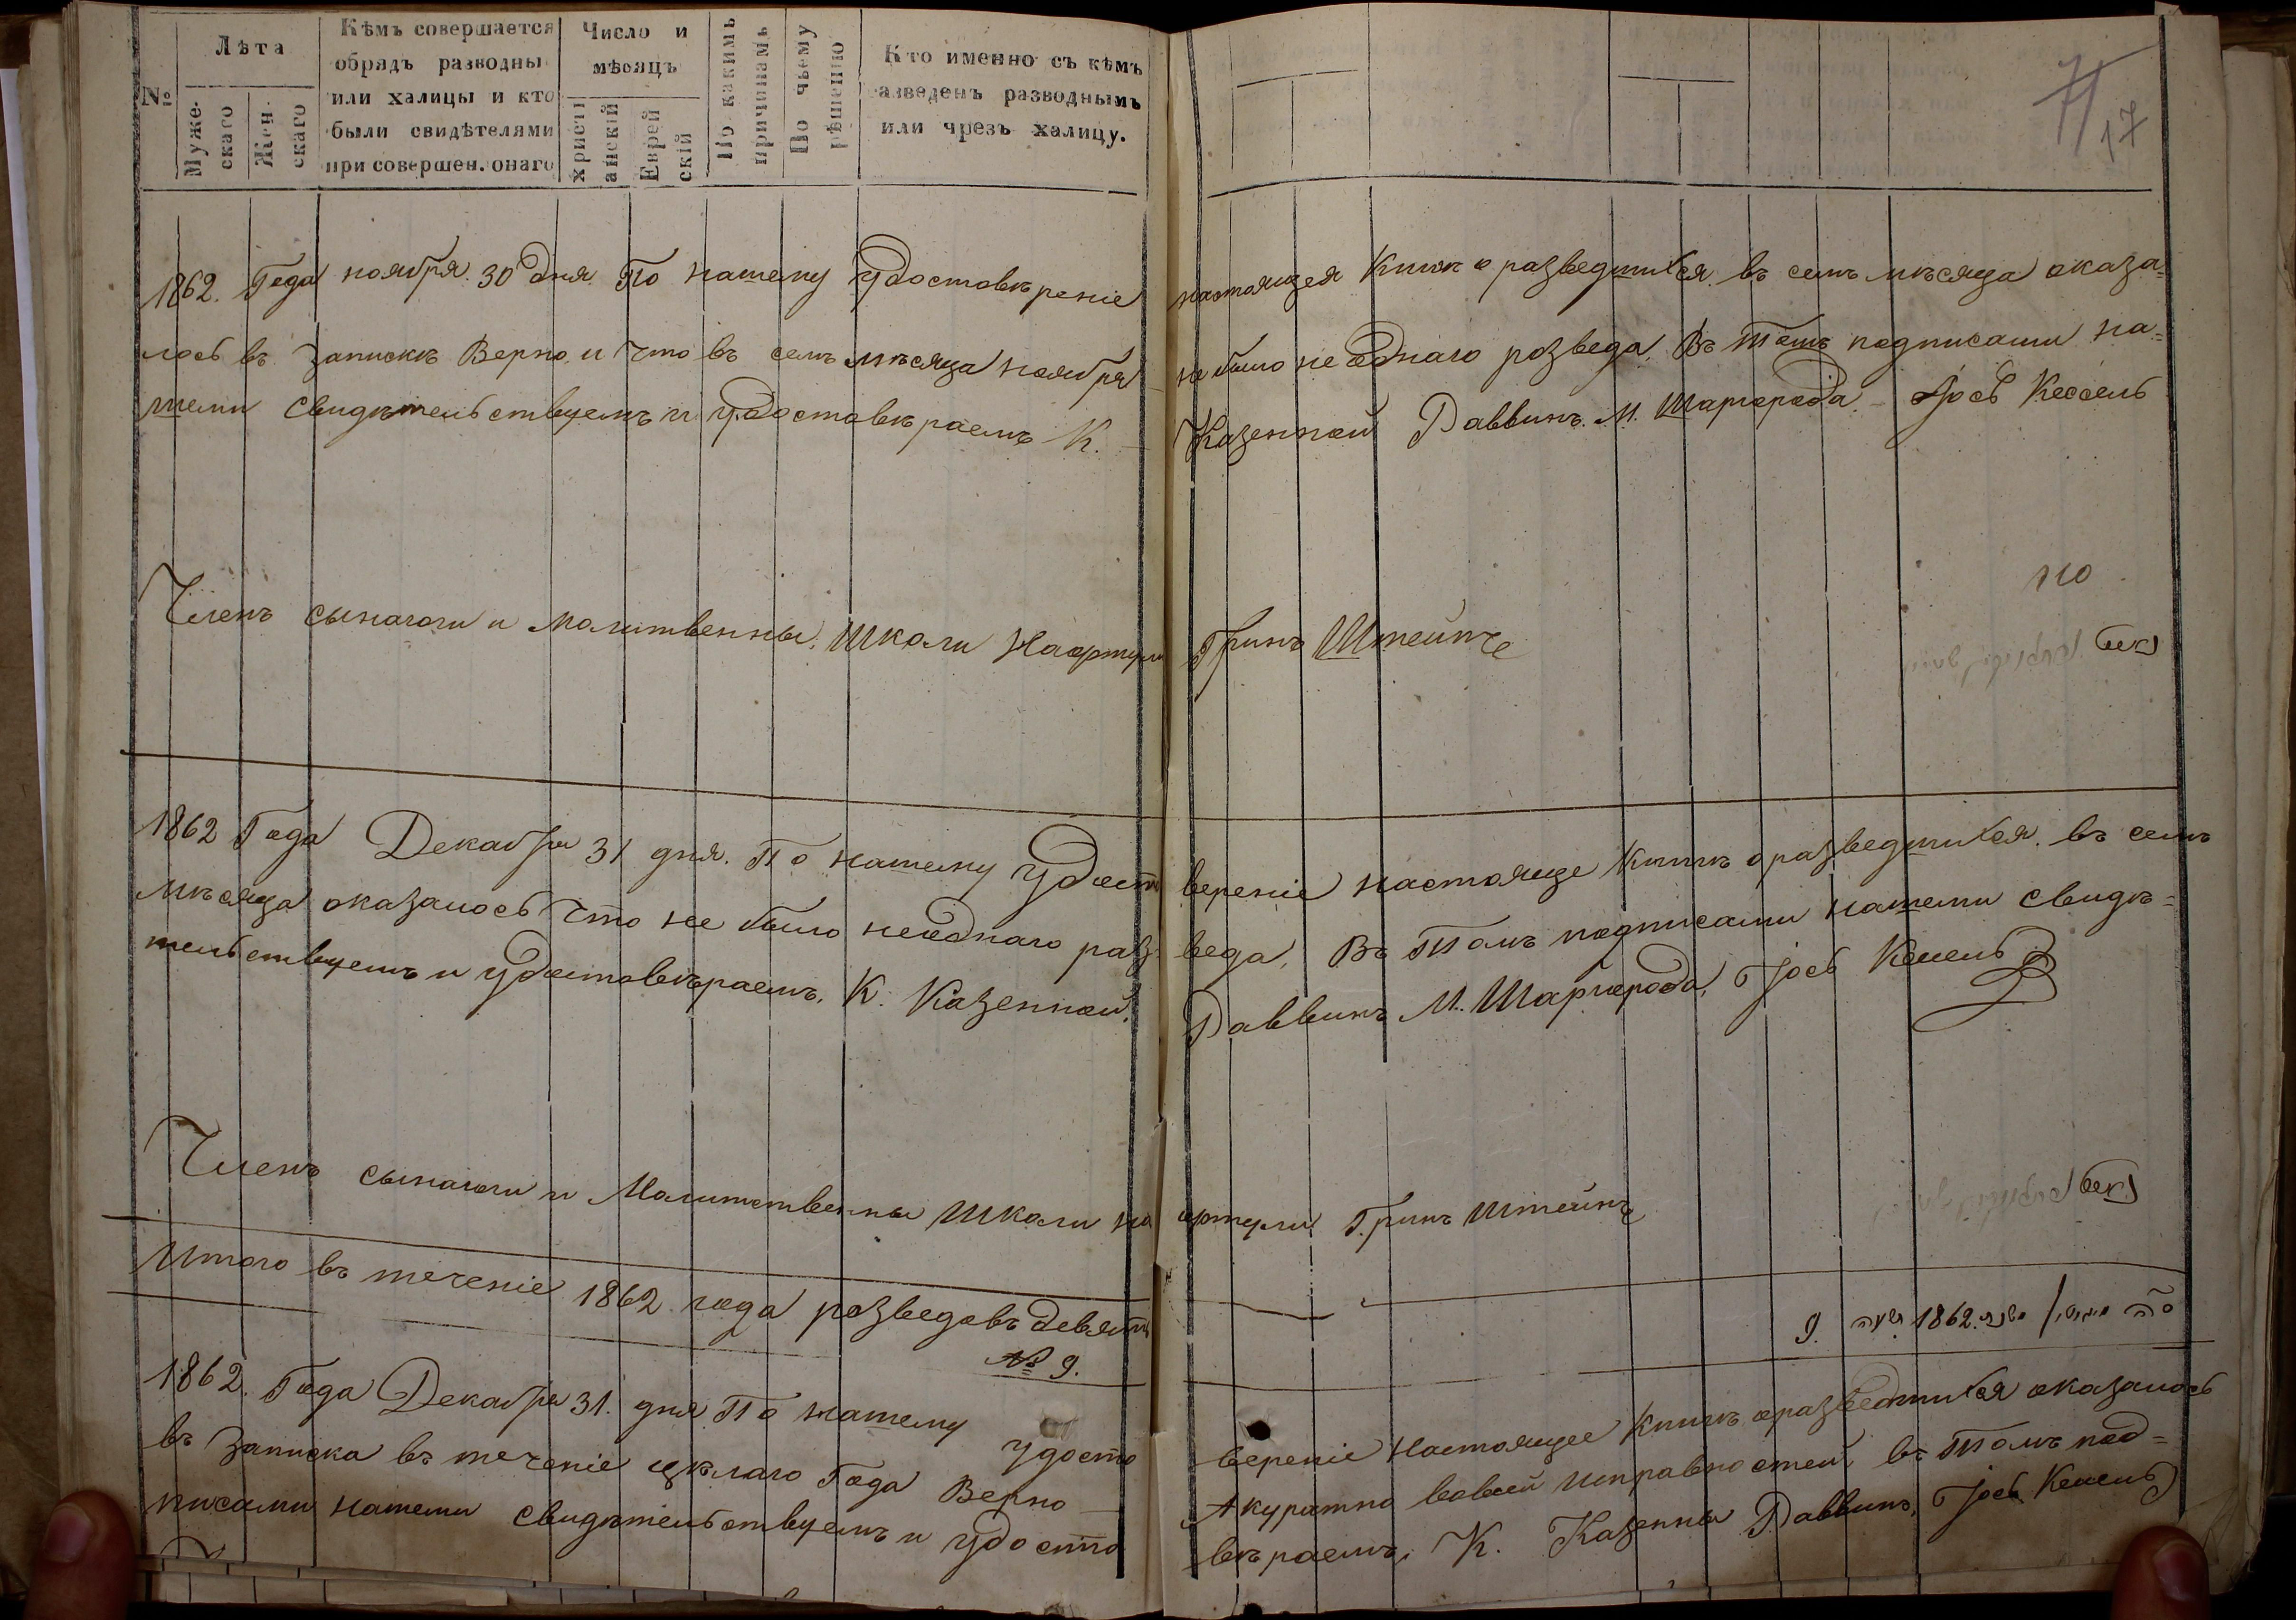 №
Лѣта
Муже-
скаго
Жен-
скаго
Кѣмъ совершается
обрядъ разводны
или халицы и кто
были свидѣтелями
при совершен. онаго
Число и
мѣсяцъ
христі
анскій
Еврей
скій
По какимъ
причинамъ
По чьему
рѣшенію
Кто именно съ кѣмъ
азведенъ разводнымъ
или чрезъ халицу.
71
17
1862. Года ноября 30 дня По нашему Удостовѣреніе настоящея Книж о разведшихся въ семъ мѣсяца оказа=
лось въ запискѣ Верно, и что въ семъ мѣсяца ноября не было не еднаго розвода, Въ томъ подписами на=
шеми свидѣтельствуемъ и удостовѣраемъ К. Казенной Раввинъ М. Шаргорода Іось Кессель
Членъ сынагоги и Молитвенны Школи Нафтули Гринъ Штейнъ
1862 Года Декабря 31 дня. По нашему Удосто верение настояще Книжъ о разведшихся въ семъ
мѣсяца оказалось что не было неоднаго раз вода, Въ томъ подписами нашеми свидѣ=
тельствуемъ и удостовѣраемъ, К. Казенной Раввинъ М. Шаргорода, Іось Кесель
Членъ сынагоги и Молитственны Школи на фтули Гринъ Штейнъ
Итого въ теченіе 1862 года розводовъ девять
№ 9.
9. 1862.
1862. Года Декабря 31. дня По нашему Удосто верение Настоящее Книжъ оразведшихся оказалось
въ Записка въ теченіе цѣлаго Года Верно Акуратно вовсей исправностей въ томъ под=
писами нашеми свидѣтельствуемъ и удосто вѣраемъ, К. Казенны Раввинъ, Іось Кесель